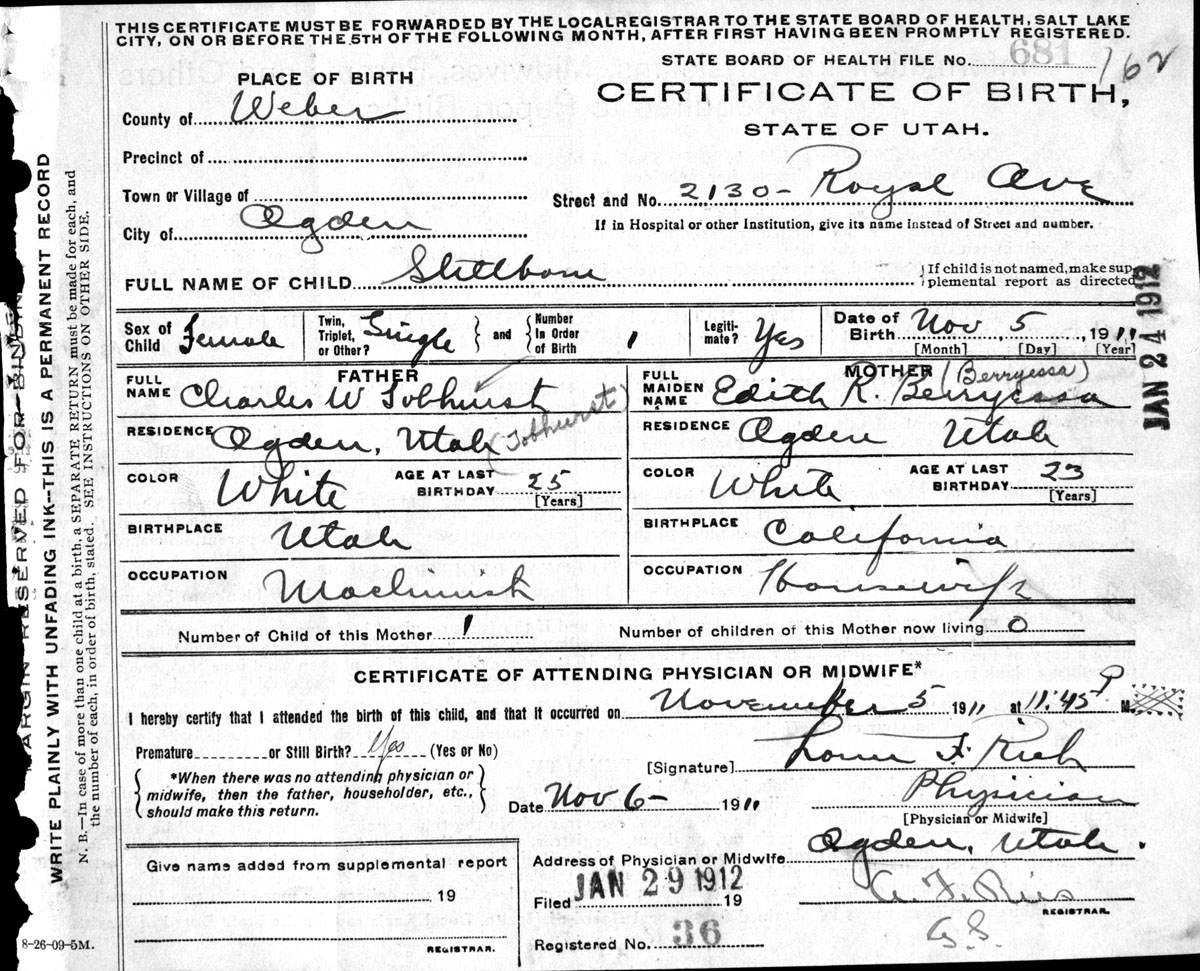 THIS CERTIFICATE MUST BE FORWARDED BY THE LOCAL REGISTRAR TO THE STATE BOARD OF HEALTH, SALT LAKE
CITY, ON OR BEFORE THE 5TH OF THE FOLLOWING MONTH, AFTER FIRST HAVING BEEN PROMPTLY REGISTERED.
STATE BOARD OF HEALTH FILE No. 681 162
PLACE OF BIRTH
CERTIFICATE OF BIRTH,
STATE OF UTAH.
County of Weber
Precinct of
Town or Village of
Street and No. 2130- Royal Ave
City of Ogden
If in Hospital or other Institution, give its name instead of Street and number.
FULL NAME OF CHILD Stillborn
If child is not named, make sup-
plemental report as directed
JAN 24 1912
Sex of Child Female
Twin, Triplet, or Other? Single
and Number In Order of Birth 1
Legiti-mate? Yes
Date of Birth Nov 5, 1911
[Month] [Day] [Year]
FATHER
FULL NAME Charles W Tobhurst
RESIDENCE Ogden, Utah (Tobhurst)
COLOR White AGE AT LAST BIRTHDAY 25
[Years]
BIRTHPLACE Utah
OCCUPATION Machinist
MOTHER (Berryessa)
FULL MAIDEN NAME Edith R. Berryessa
RESIDENCE Ogden Utah
COLOR White AGE AT LAST BIRTHDAY 23
[Years]
BIRTHPLACE California
OCCUPATION Housewife
Number of Child of this Mother 1 Number of children of this Mother now living 0
CERTIFICATE OF ATTENDING PHYSICIAN OR MIDWIFE*
I hereby certify that I attended the birth of this child, and that it occurred on November 5 1911 at 11:45 P M.
Premature or Still Birth? Yes (Yes or No)
*When there was no attending physician or
midwife, then the father, householder, etc.,
should make this return.
[Signature] F. Rich
Date Nov 6- 1911 Physician
[Physician or Midwife]
Address of Physician or Midwife Ogden, Utah.
Give name added from supplemental report
19
REGISTRAR.
Filed JAN 29 1912 19
REGISTRAR.
Registered No. 36
8-26-09-5M.
MARGIN RESERVED FOR BINDING
WRITE PLAINLY WITH UNFADING INK--THIS IS A PERMANENT RECORD
N. B.—In case of more than one child at a birth, a SEPARATE RETURN must be made for each, and
the number of each, in order of birth, stated. SEE INSTRUCTIONS ON OTHER SIDE.